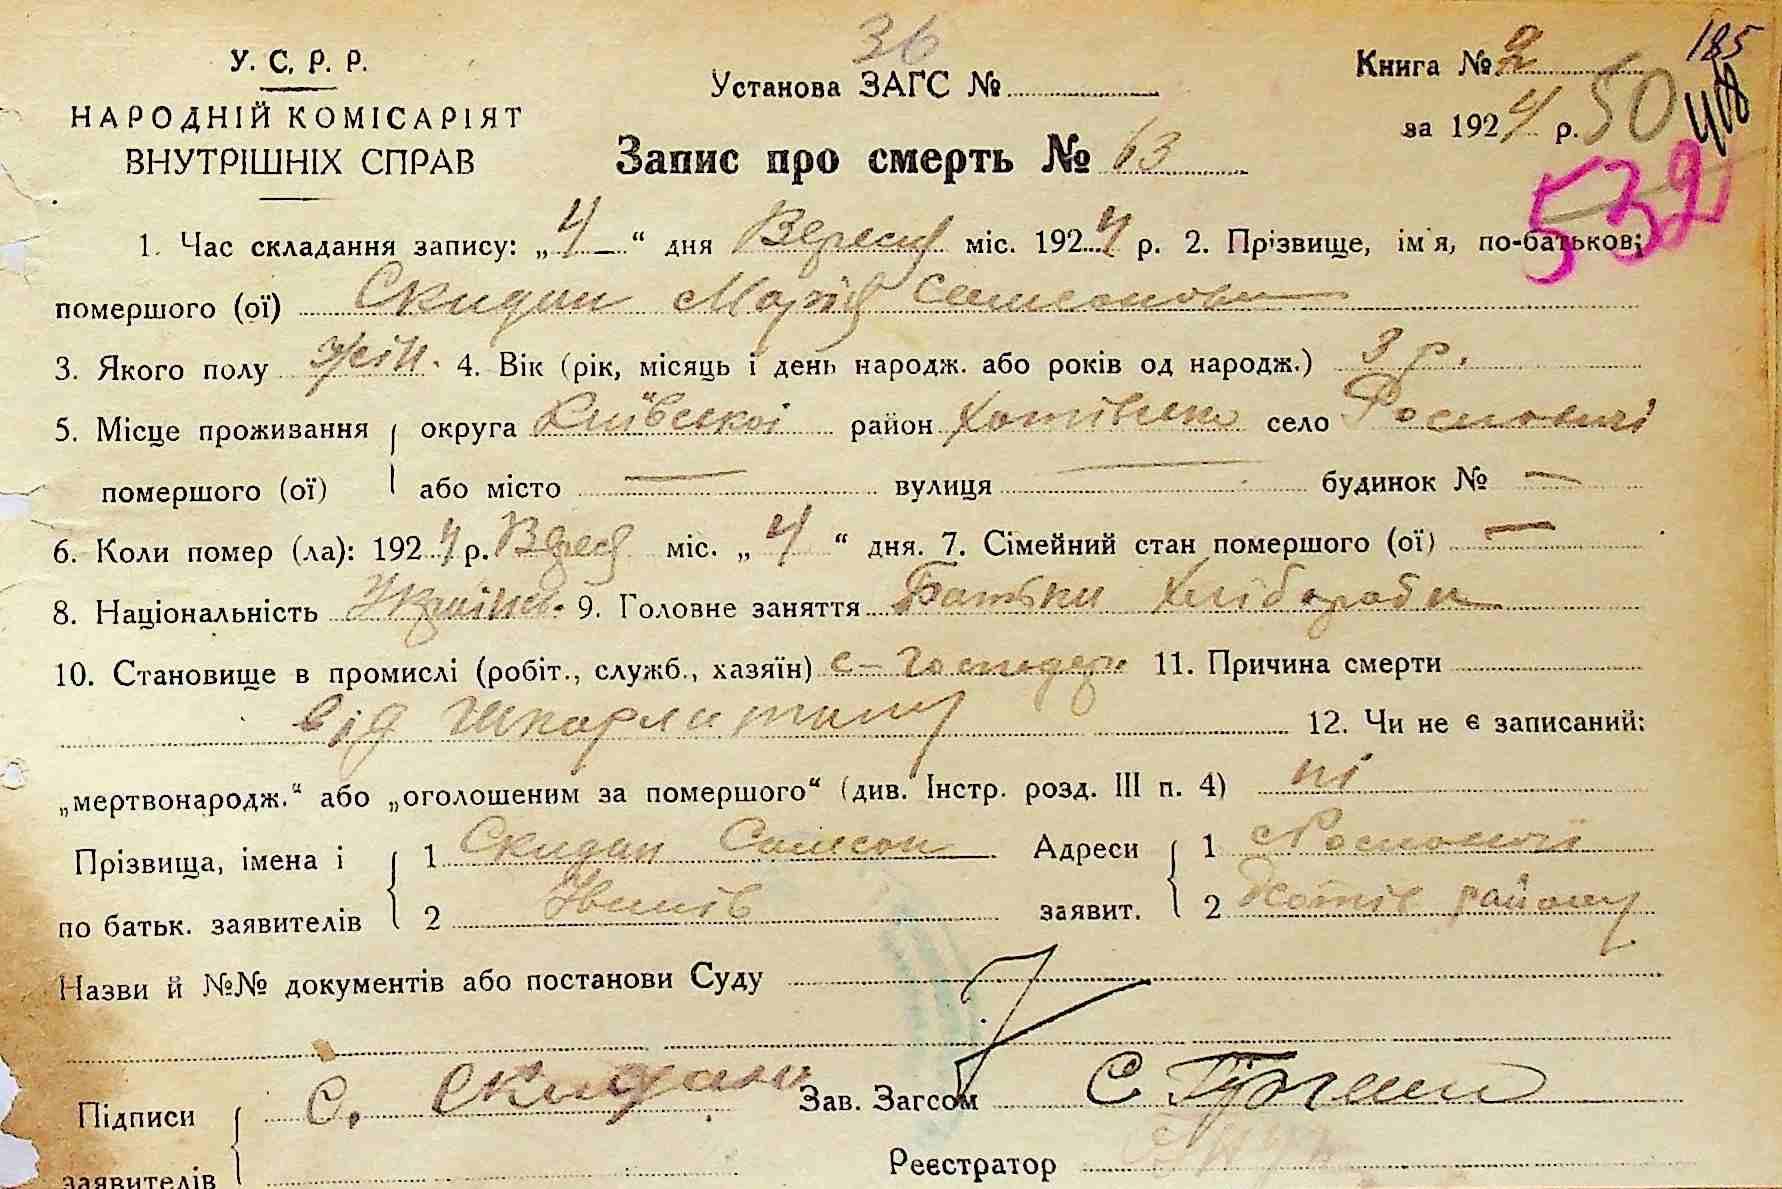 36
185
У. С. Р. Р.
Установа ЗАГС №
Книга № 2
НАРОДНІЙ КОМІСАРІЯТ
за 1924 р. 50
ВНУТРІШНІХ СПРАВ
Запис про смерть № 63
532
1. Час складання запису: „4“ дня Вересня міс. 1924 р. 2. Прізвище, ім'я, по-батькові
помершого (ої) Скидан Марія Самсоновн
3. Якого полу жін. 4. Вік (рік, місяць і день народж. або років од народж.) 3 р.
5. Місце проживання округа Київської район Хотівськ село
помершого (ої) або місто — вулиця — будинок № —
6. Коли помер (ла): 1924 р. Вересня міс. „4“ дня. 7. Сімейний стан помершого (ої) —
8. Національність Україн. 9. Головне заняття Батьки Хлібороби
10. Становище в промислі (робіт., служб., хазяїн) с-господар 11. Причина смерти
від шкарлитину 12. Чи не є записаний:
„мертвонародж.“ або „оголошеним за помершого“ (див. Інстр. розд. III п. 4) ні
Прізвища, імена і 1 Скидан Самсон Адреси 1
по батьк. заявителів 2 заявит. 2 Хотів району
Назви й №№ документів або постанови Суду
Підписи С. Скидан Зав. Загсом С
заявителів Реєстратор